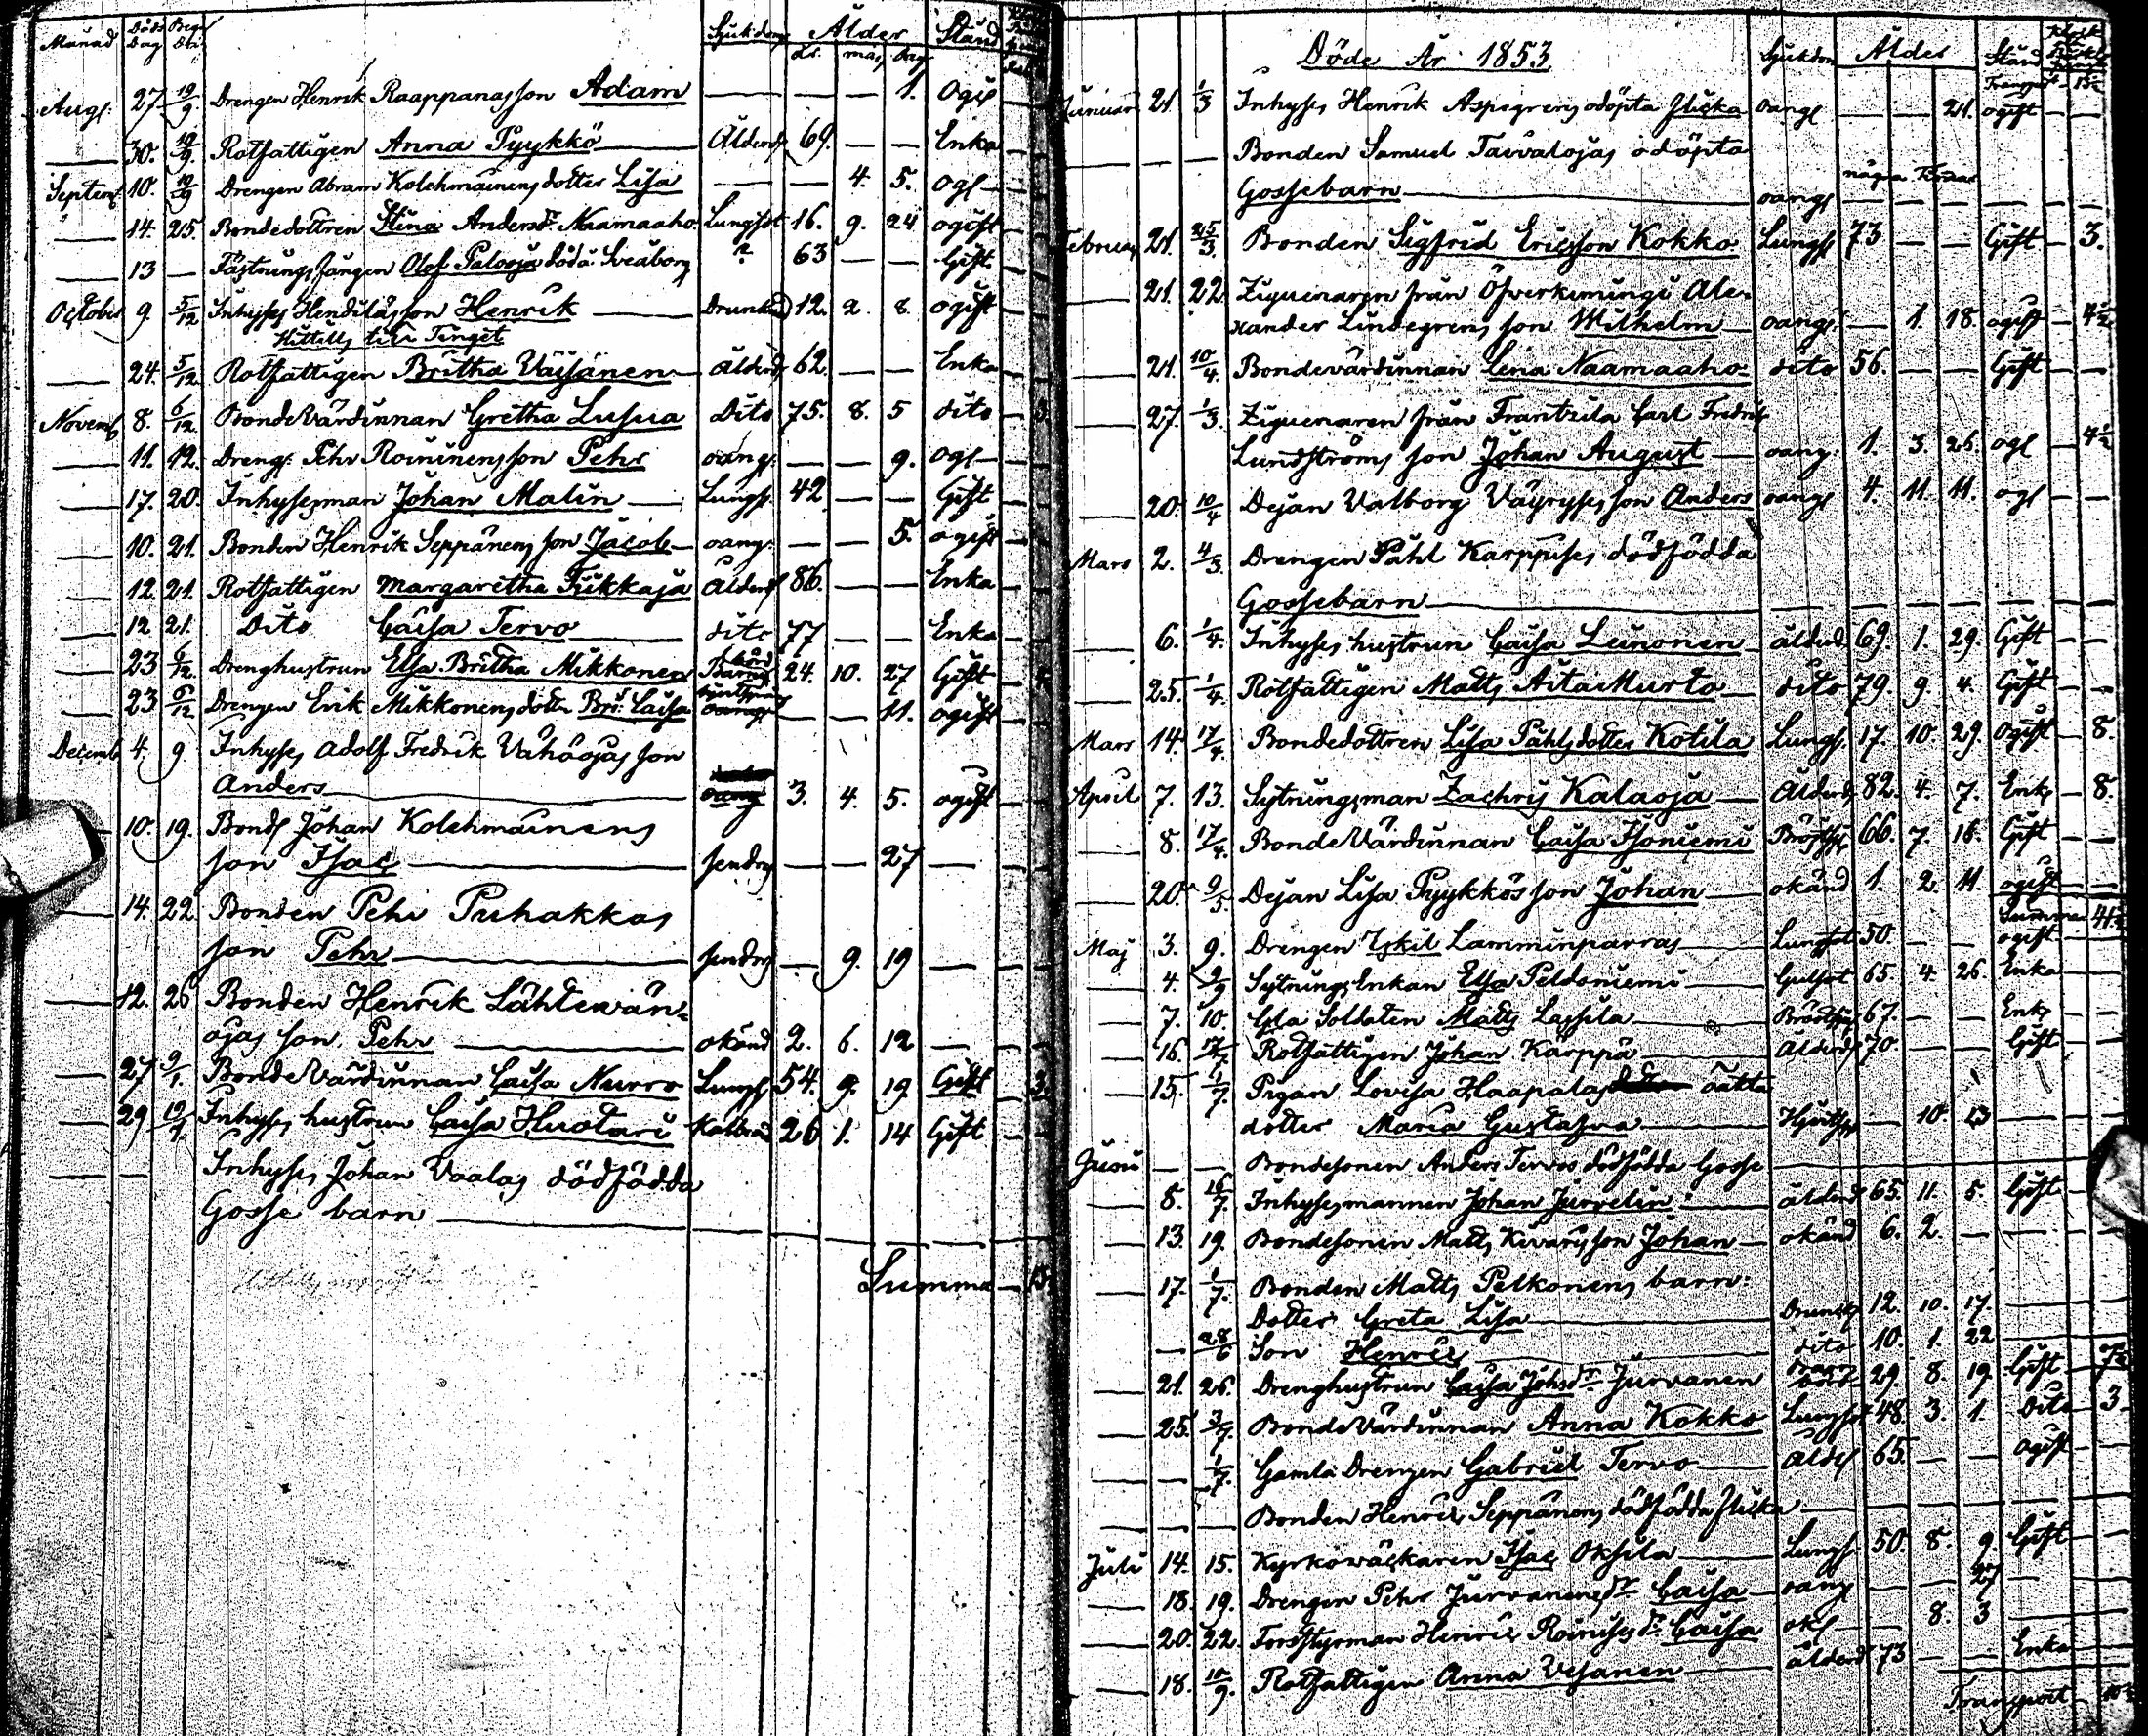 Månad Döds Dag Begr Dito Sjukdom Ålder Stånd
År mån dag
Aug: 27 19/9 Drengen Henrik Raappanas son Adam — — 1. Ogift
— 30. 19/9 Rotfattigen Anna Pyykkö Ålderd 69. — — Enka
Septemb 10. 19/9 Drengen Abram Kolehmainens dotter Lisa — — 4. 5. Ogf
— 14. 25. Bondedottren Stina Andersdr Naamaaho Lungsot 16. 9. 24 ogift
— 13 — Fästningsfången Olof Palooja död å Sveaborg ? 63 — — Gift
October 9. 5/12 Inhyses Hendiläs son Henrik Drunknad 12. 2. 8. ogift
Hittills till Tinget
— 24. 5/12 Rotfattigen Britha Väisänen Ålderd 62. — — Enka
Novemb 8. 6/12 Bonde Värdinnan Gretha Lusua Dito 75. 8. 5 dito
— 11. 12. Dreng: Pehr Roininens son Pehr oang: — — 9. Ogf
— 17. 20. Inhysesman Johan Malin Lungs: 42 — — Gift
— 10. 21. Bonden Henrik Seppänens son Jacob oang: — — 5. ogift
— 12. 21. Rotfattigen Margaretha Tikkaja Ålderd 86. — — Enka
— 12 21. Dito Caisa Tervo dito 77 — — Enka
— 23 6/12 Drenghustrun Elsa Britha Mikkonen Barns 24. 10. 27 Gift
— 23 6/12 Drengen Erik Mikkonens dotter Bri: Caisa oang — — 11. ogift
Decemb 4. 9 Inhyses Adolf Fredrik Vähäojas son
Anders oang 3. 4. 5. ogift
10. 19. Bond Johan Kolehmainens
son Isac sendrag — — 27 —
— 14. 22 Bonden Pehr Puhakkas
son Pehr sendrag — 9. 19 —
— 12. 26 Bonden Henrik Lähtewän-
ojas son Pehr okänd 2. 6. 12 —
— 27 9/1. Bonde Värdinnan Caisa Nurro Lungs 54. 9. 19 Gift 3.
— 29 19/1 Inhyses hustrun Caisa Huotari Kallbrand 26 1. 14 Gift
— — Inhyses Johan Vaalas dödfödda
Gosse barn
Summa
Döde År 1853 Sjukdom Ålder Stånd
Januari 21. 1/3 Inhyses Henrik Aspegrens odöpta flicka oang — — 21. ogift
— — — Bonden Samuel Taivalojas odöpta
några timmar
Gossebarn oang — — —
Februari 21. 25/3. Bonden Sigfrid Ericsson Kokko Lungs 73 — — Gift 3.
— 21. 22 Ziguenaren från Öfverkiminge Ale-
xander Lindegrens son Wilhelm oang — 1. 18. ogift 4½
— 21. 10/4. Bondevärdinnan Lena Naamaaho dito 56. — — Gift
— 27. 1/3. Ziguenaren från Frantsila Carl Fredrik
Lundströms son Johan August oang: 1. 3. 26. ogf 4½
— 20. 10/4 Dejan Valborg Väyryses son Anders oang 4. 11. 11. ogf
Mars 2. 4/3. Drengen Påhl Karppises dödfödda
Gossebarn
— 6. 1/4. Inhyses hustrun Caisa Leinonen ålderd 69. 1. 29. Gift
— 25. 1/4. Rotfattigen Matts AitaMurto dito 79. 9. 4. Gift
Mars 14. 17/4. Bondedottren Lisa Påhlsdotter Kotila Lungs. 17. 10. 29. Ogift 8.
April 7. 13. Sytningsman Zachris Kalaoja Ålderd 82. 4. 7. Enkl 8.
— 8. 17/4. Bonde Värdinnan Caisa Isoniemi Bröstsj 66. 7. 18. Gift
— 20. 9/5. Dejan Lisa Pyykkös son Johan okänd 1. 2. 11. ogift
Summa 41½
Maj 3. 9. Drengen Eskil Lamminparras Lungsot 50. — — ogift
— 4. 9/9 Sytnings Enkan Elsa Peldoniemi Gulsot 65. 4. 26. Enka
— 7. 10. Gla Soldaten Matts Lassila Bröstsj 67. — — Enkl
— 16. 17/7 Rotfattigen Johan Karppä Ålderd 70. — — Gift
— 15. 1/7. Pigan Lovisa Haapalas oäkta
dotter Maria Gustafva — 10. 13
Juni — — Bondesonen Anders Tervos dödfödda Gosse
— 8. 16/7. Inhysesmannen Johan Jurvelin ålderd 65. 11. 5. Gift
— 13. 19. Bondesonen Matts Kivaris son Johan okänd 6. 2. —
— 17. 1/7. Bonden Matts Pelkonens barn:
Dotter Greta Lisa Drunkn 12. 10. 17.
— 28/6 Son Henric dito 10. 1. 22
— 21. 26. Drenghustrun Caisa Johsdr Jurvanen Barnsbörd 29 8. 19. Gift 7½
— 25. 3/7. Bonde Värdinnan Anna Kokko Lungsot 48. 3. 1. Dito 3
— — 1/7. Gamla Drengen Gabriel Tervo Åldrd 65. — — ogift
— — — Bonden Henric Seppänens dödfödda flicka
Juli 14. 15. Kyrkowäckaren Isac Oksila Lungs. 50. 8. 9. Gift
— 18. 19. Drengen Pehr Jurvanens dr Caisa oang — — 27
— 20. 22. Forsstyrman Henric Roinises dr Caisa okd — 8. 3
— 18. 10/9. Rotfattigen Anna Vesanen ålderd 73 — — Enka
Transport